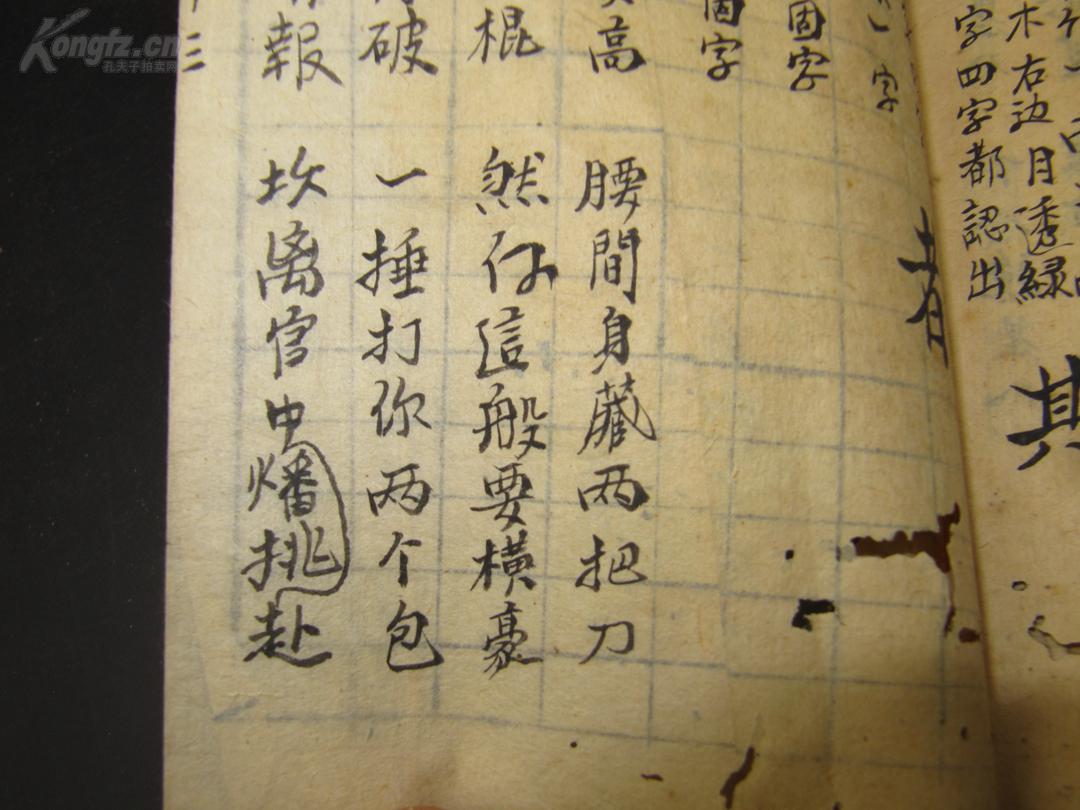 字四字都認出
木右边月透緑
其
者
字
固字
固字
高
腰間身藏两把刀
棍
然何這般要横豪
破
一捶打你两个包
報
坎离宫中燔挑赴
二
Kongfz.cn
孔夫子拍卖网